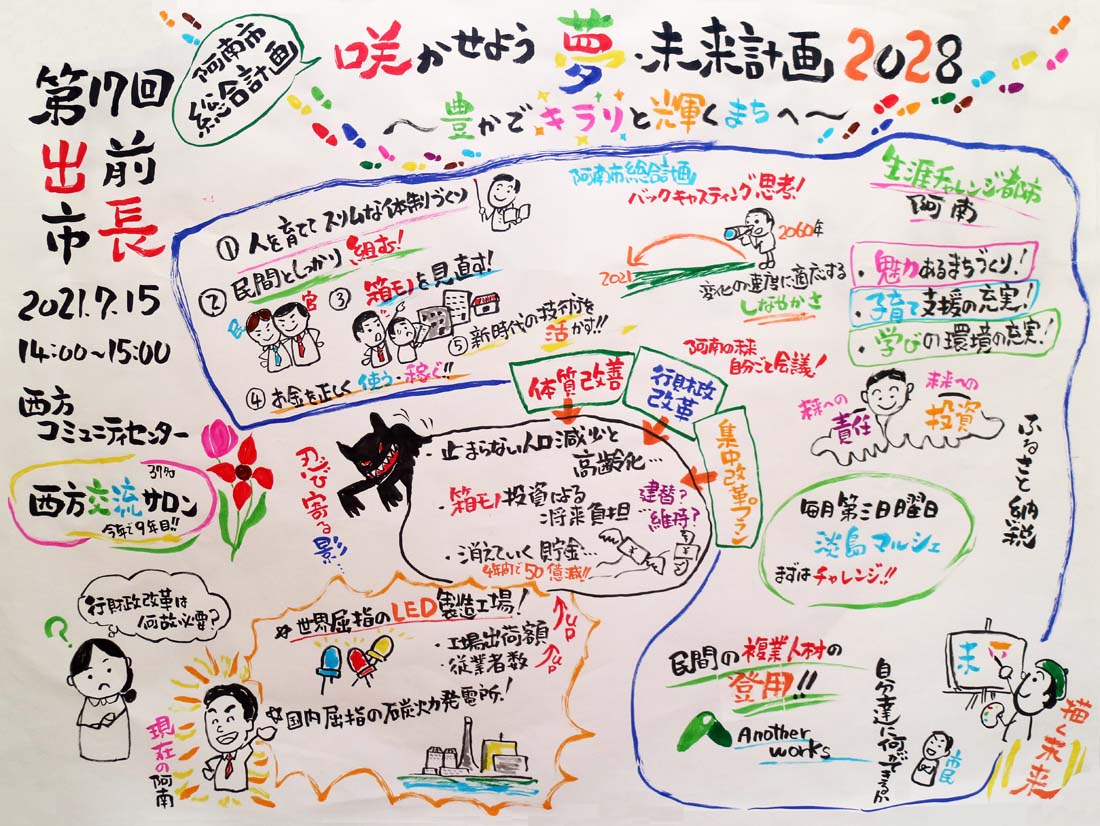 第17回
出前
市長
2021.7.15
14:00~15:00
西方
コミュニティセンター
西方交流サロン
今年で9年目!!
阿南市
総合計画
咲かせよう 夢・未来計画2028
～豊かでキラリと輝くまちへ～
① 人を育てて スリムな体制づくり
② 民間としっかり組む!
民
官
③ 箱モノを見直す!
④ お金を正しく使う・稼ぐ!!
⑤ 新時代の技術を
活かす!!
阿南市総合計画
バックキャスティング思考!
2060年
2021
変化の速度に適応する
しなやかさ
阿南の未来
自分ごと会議!
生涯チャレンジ都市
阿南
・魅力あるまちづくり!
・子育て支援の充実!
・学びの環境の充実!
未来への
責任
未来への
投資
ふるさと納税
体質改善
行財政
改革
集中改革プラン
忍び寄る影…
・止まらない人口減少と
高齢化…
・箱モノ投資による
将来負担
建替?
維持?
・消えていく貯金…
4年間で50億減!!
毎月第三日曜日
淡島マルシェ
まずはチャレンジ!!
行財政改革は
何故必要?
?
現在の阿南
世界屈指のLED製造工場!
・工場出荷額
up
・従業者数
up
国内屈指の石炭火力発電所!
民間の複業人材の
登用!!
Another
works
自分達に何ができるか
市民
未
描く未来